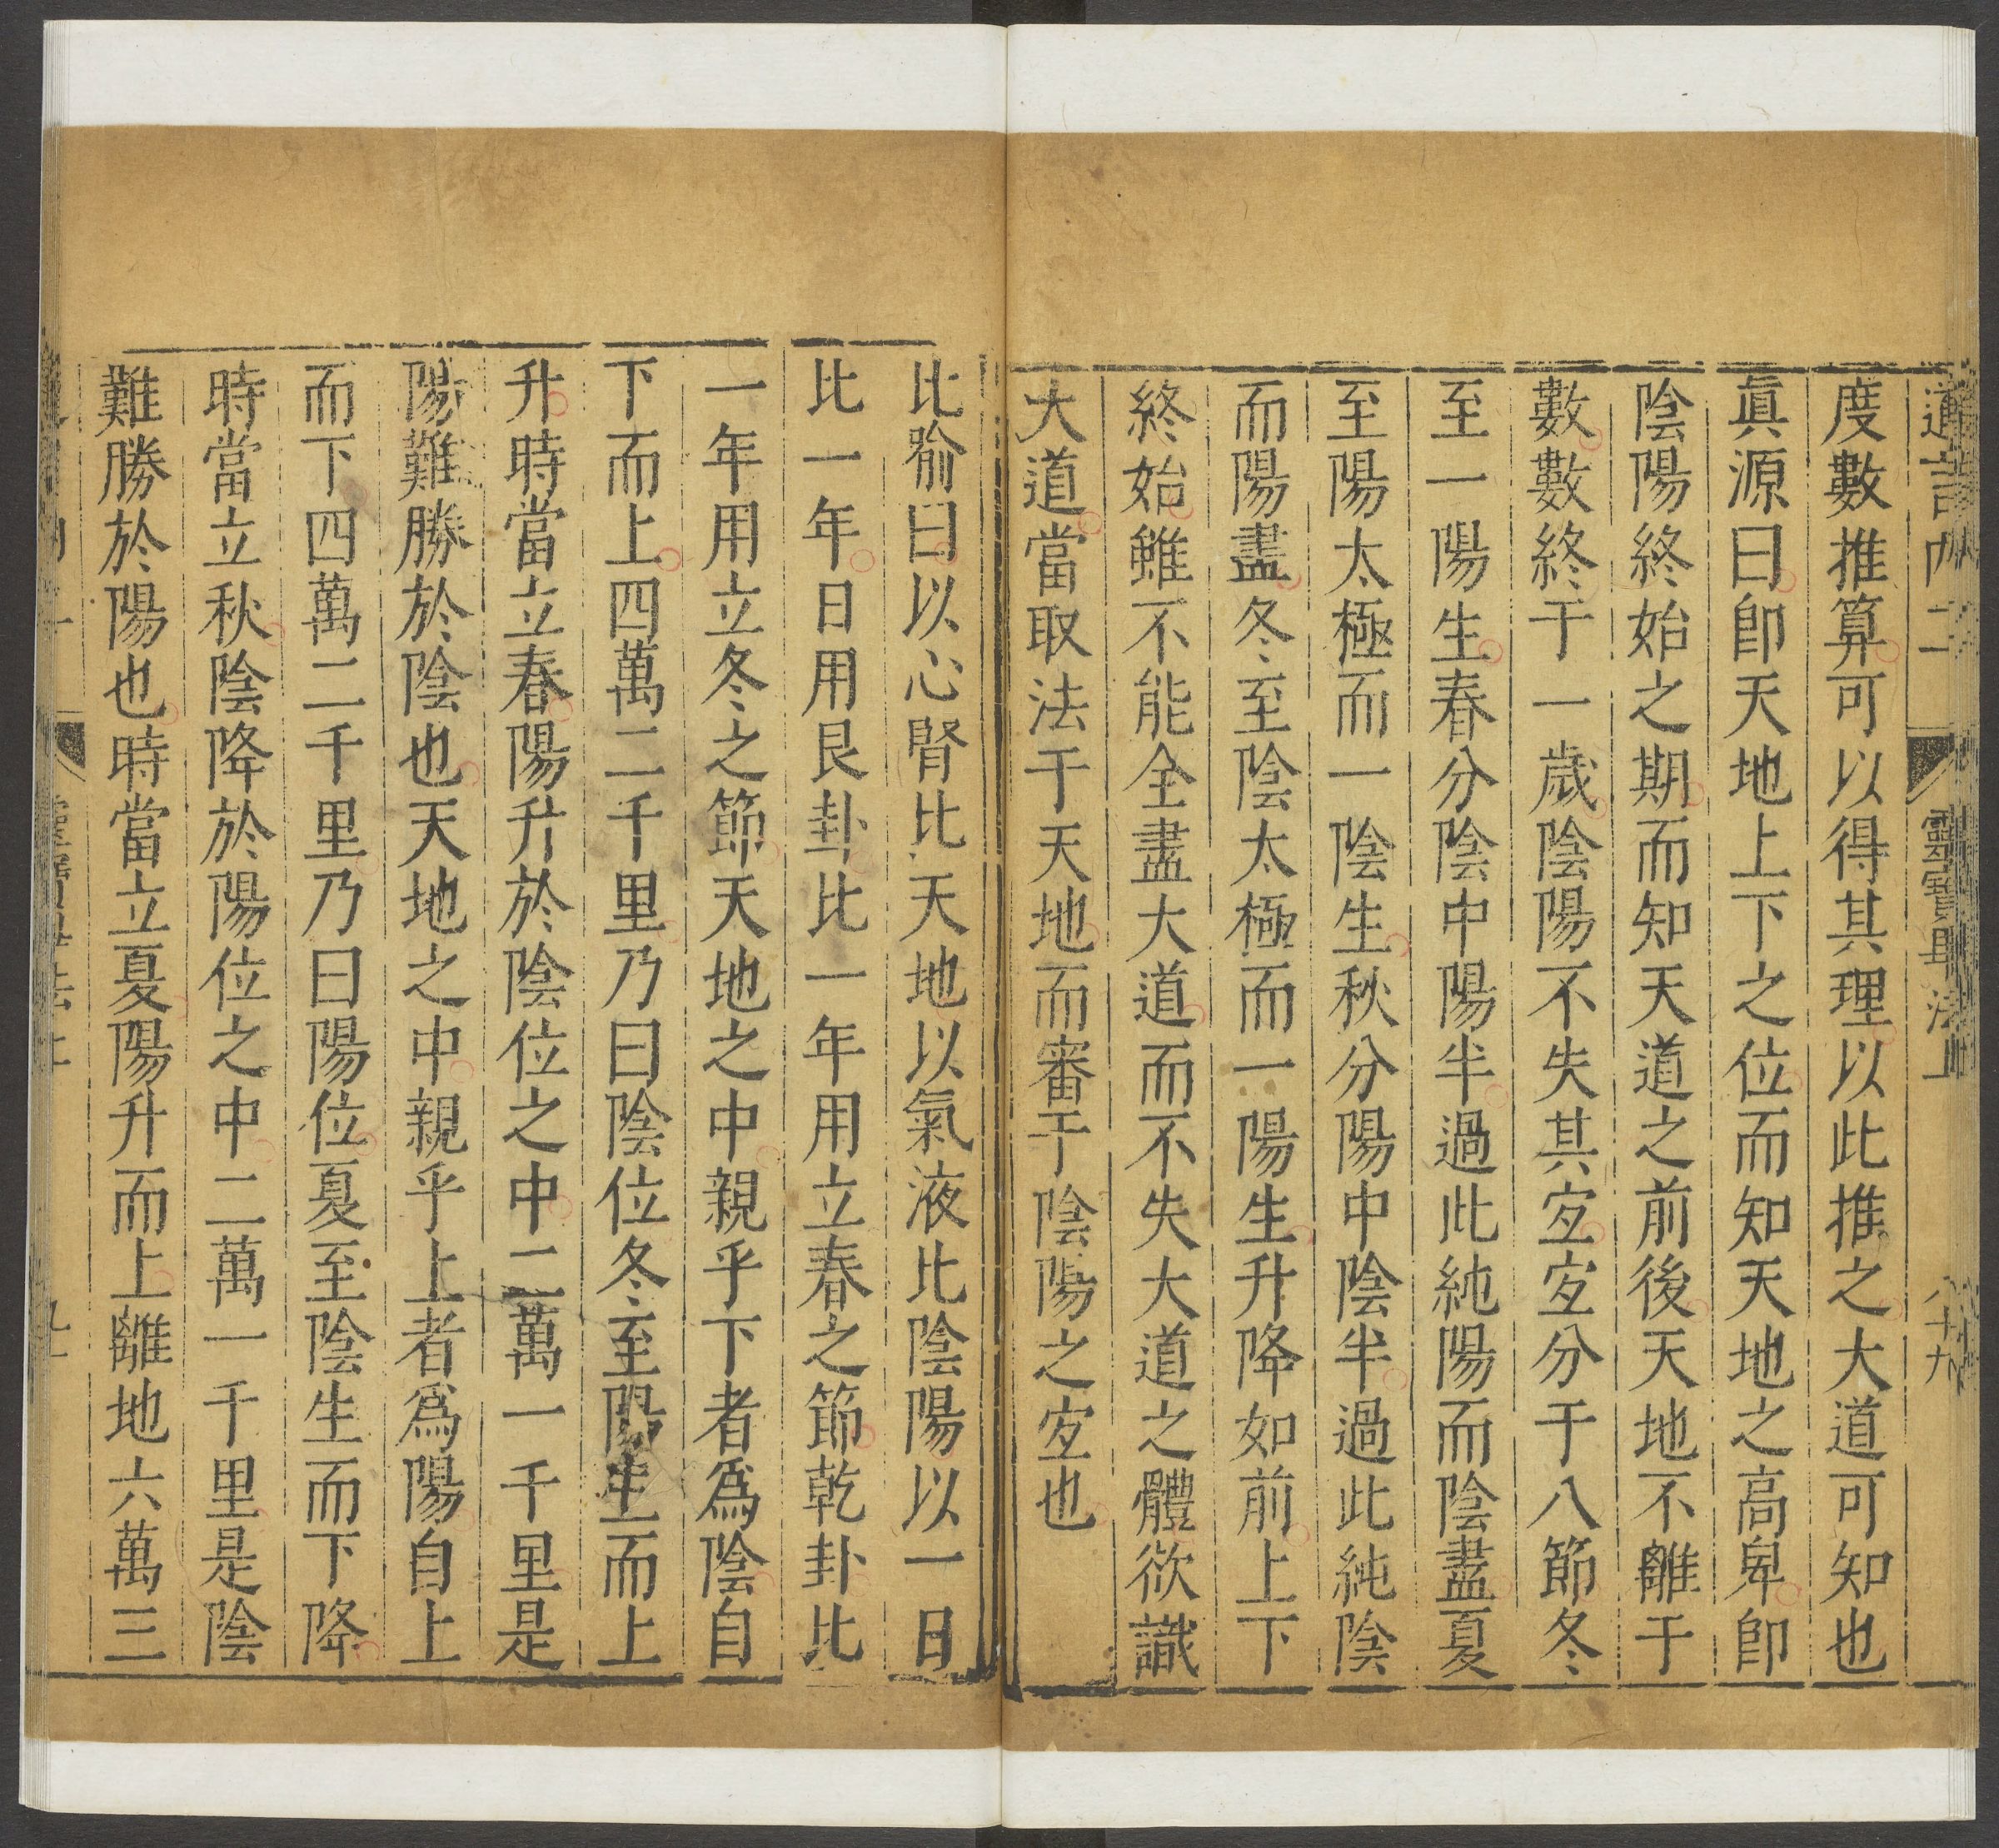 度數推算可以得其理以此推之大道可知也
眞源曰卽天地上下之位而知天地之高卑卽
陰陽終始之期而知天道之前後天地不離于
數數終于一歲陰陽不失其宐宐分于八節冬
至一陽生春分陰中陽半過此純陽而陰盡夏
至陽太極而一陰生秋分陽中陰半過此純陰
而陽盡冬至陰太極而一陽生升降如前上下
終始雖不能全盡大道而不失大道之體欲識
大道當取法于天地而審于陰陽之宐也
比喻曰以心腎比天地以氣液比陰陽以一日
比一年日用艮卦比一年用立春之節乾卦比
一年用立冬之節天地之中親乎下者爲陰自
下而上四萬二千里乃曰陰位冬至陽生而上
升時當立春陽升於陰位之中二萬一千里是
陽難勝於陰也天地之中親乎上者爲陽自上
而下四萬二千里乃曰陽位夏至陰生而下降
時當立秋陰降於陽位之中二萬一千里是陰
難勝於陽也時當立夏陽升而上離地六萬三